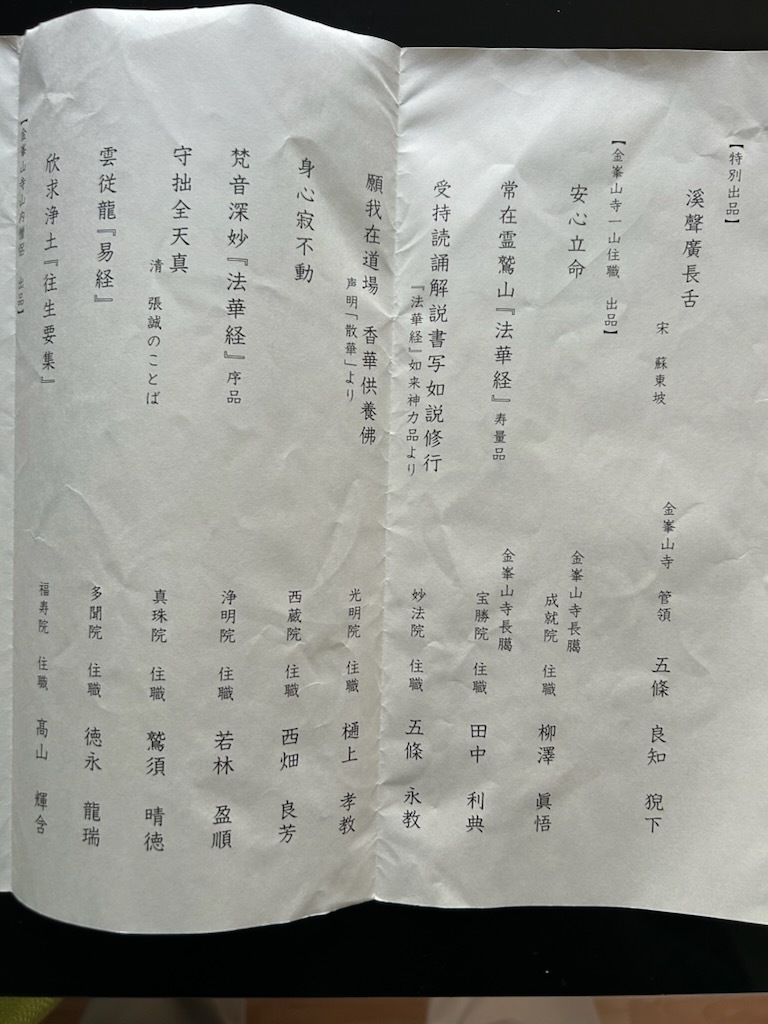 【特別出品】
溪聲廣長舌 宋 蘇東坡 金峯山寺 管領 五條 良知 猊下
【金峯山寺一山住職 出品】
安心立命 金峯山寺長臈 成就院 住職 柳澤 眞悟
常在霊鷲山『法華経』寿量品 金峯山寺長臈 宝勝院 住職 田中 利典
受持読誦解説書写如説修行
『法華経』如来神力品より 妙法院 住職 五條 永教
願我在道場 香華供養佛
声明「散華」より 光明院 住職 樋上 孝教
身心寂不動 西蔵院 住職 西畑 良芳
梵音深妙『法華経』序品 浄明院 住職 若林 盈順
守拙全天真
清 張誠のことば 真珠院 住職 鷲須 晴徳
雲従龍『易経』 多聞院 住職 徳永 龍瑞
欣求浄土『往生要集』 福寿院 住職 髙山 輝含
【金峯山寺山内僧侶 出品】